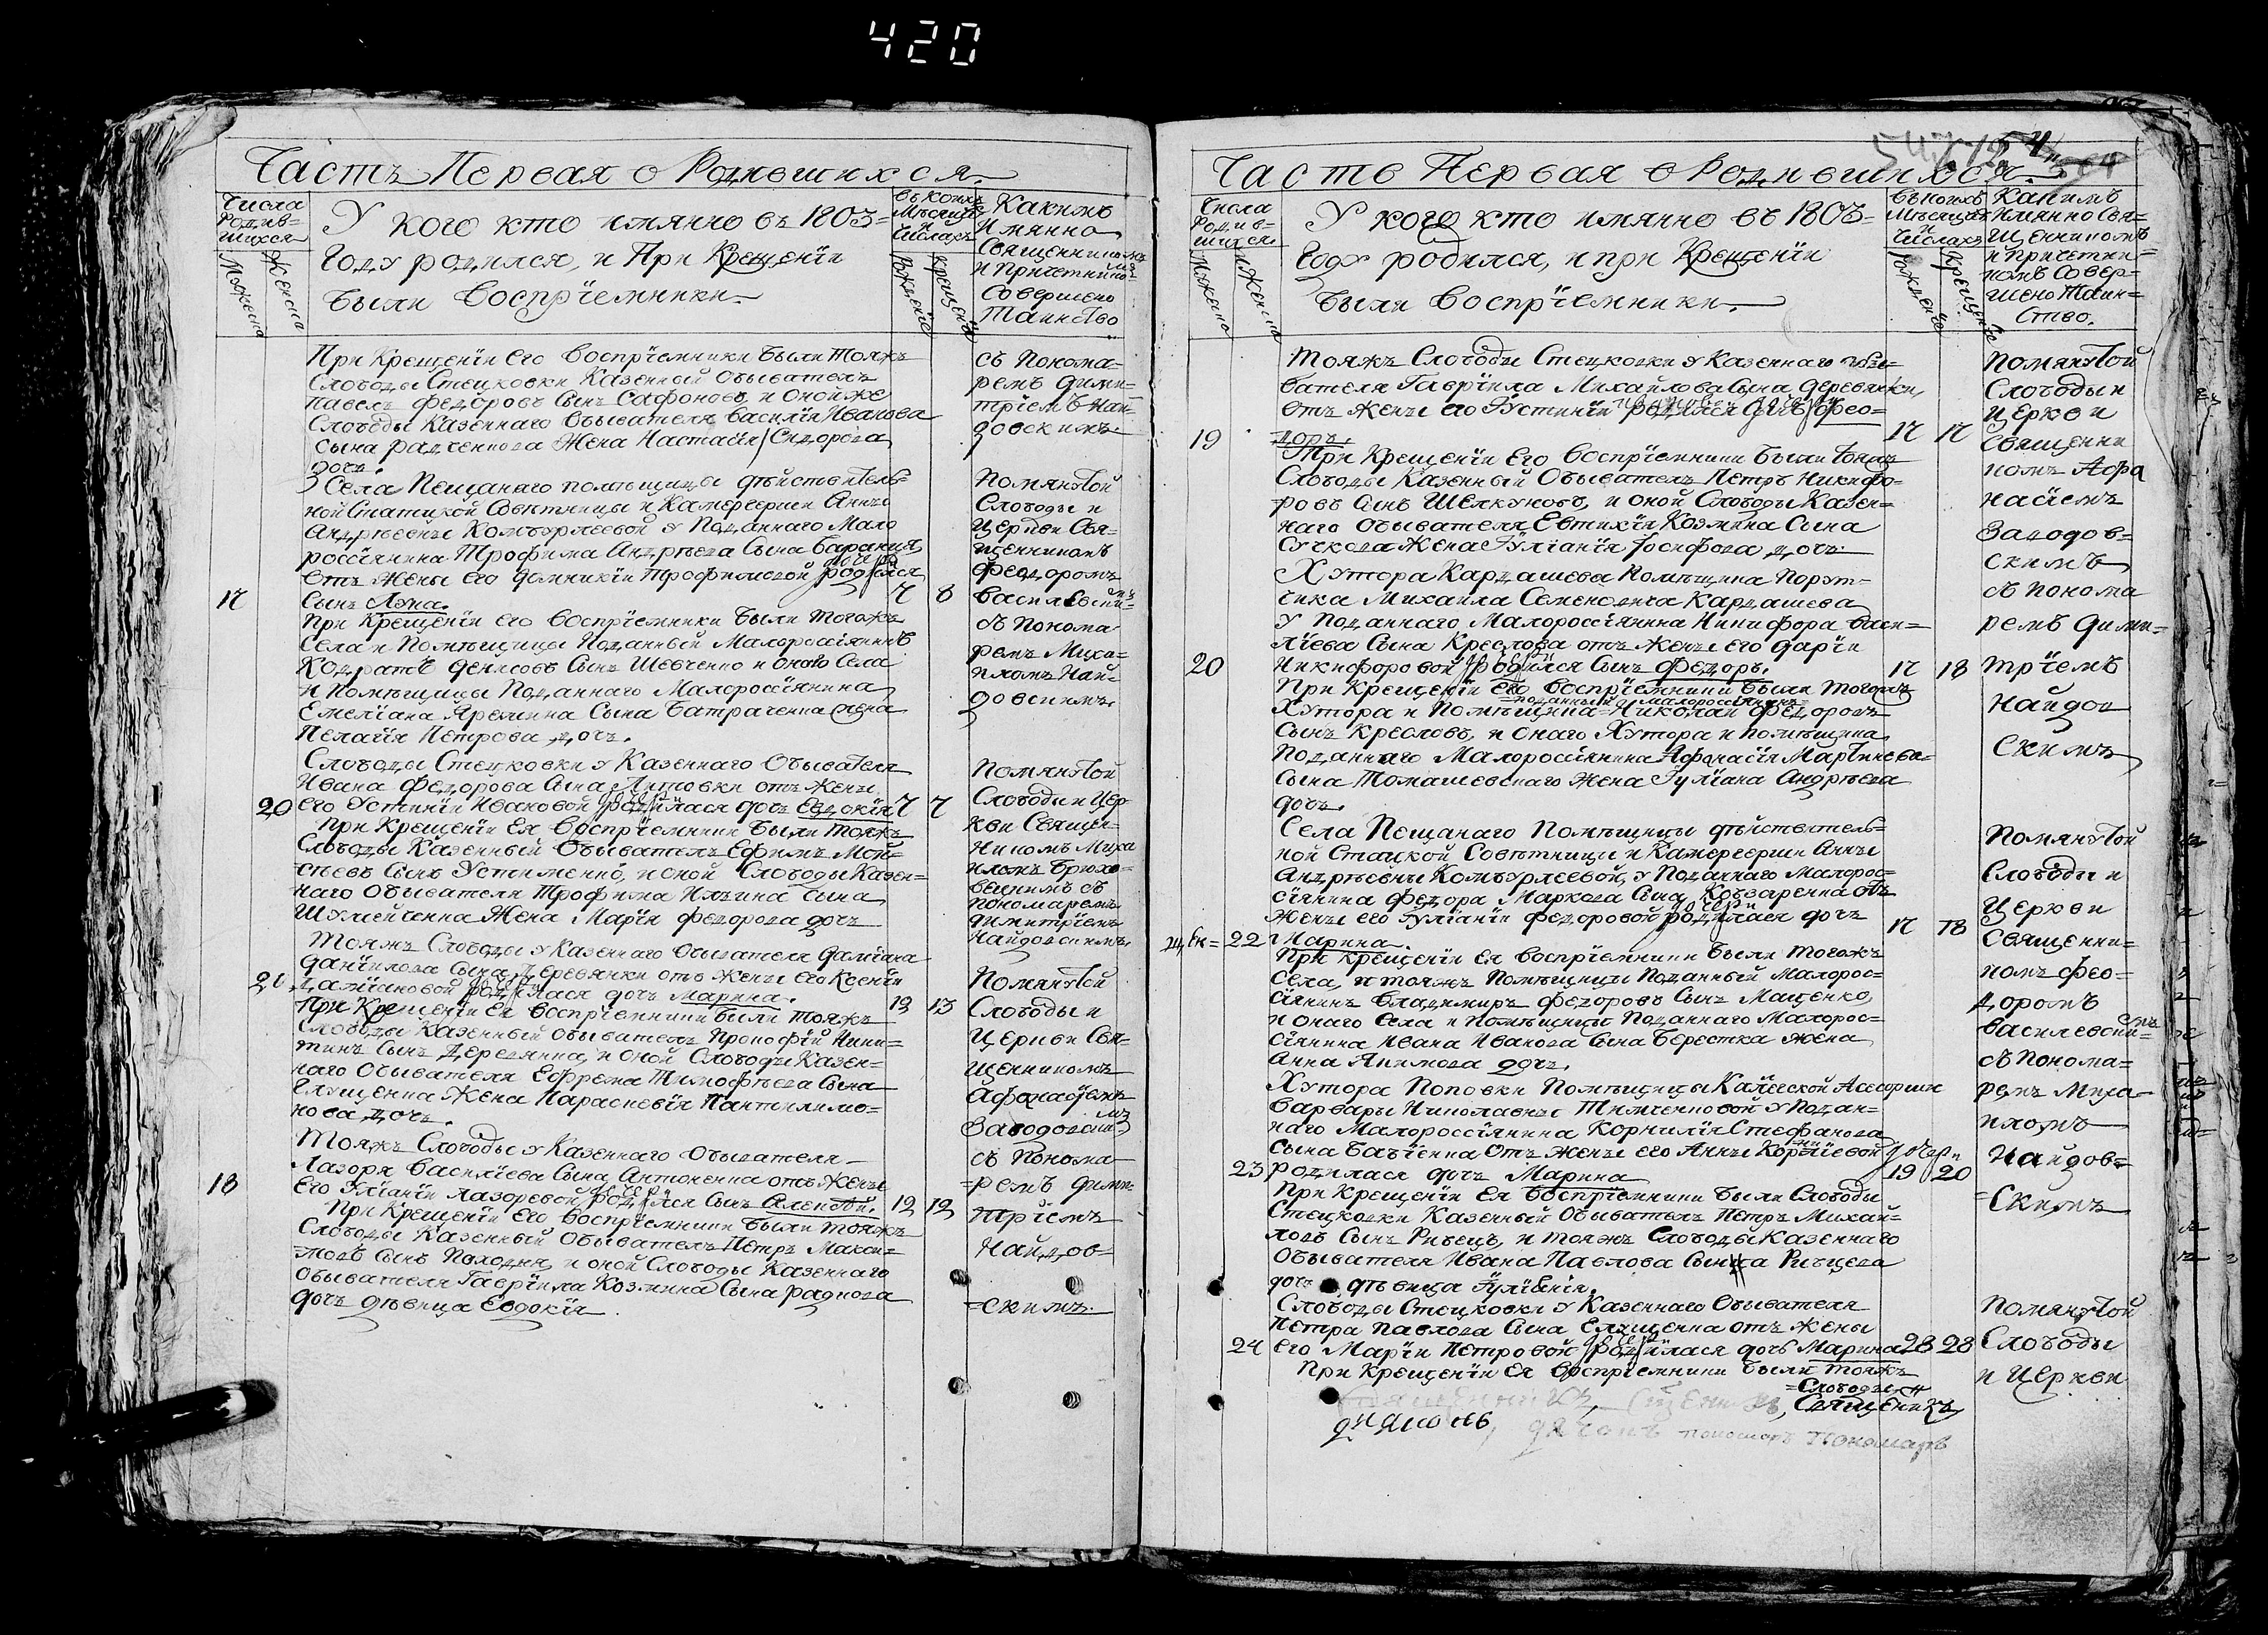 420
Часть Первая о Родившихся.
Числа
Родив=
шихся
Мужеска
Женска
У кого кто имянно въ 1803=
Году родился, и При Крещенїи
были Воспрїемники.
Въ коихъ
Мѣсяцѣ
и
Числахъ
Рожденїе
Крещенїе
Какимъ
Имянно
Священникомъ
и Причетникомъ
Совершено
Таинство
При Крещенїи Его Воспрїемники были тояжъ
Слободы Стецковки Казенный Обыватель
Павелъ Федоровъ Сынъ Сафоновъ, и Оной же
Слободы Казеннаго Обывателя Василїя Иванова
Сына Радченкова Жена Настасїя Сидорова
дочь.
съ Понома=
ремъ Дими=
трїемъ Най=
довскимъ.
Села Пещанаго помѣщицы дѣйствитель=
ной Статской Совѣтницы и Камергерши Анны
Андрѣевны Комбурлеевой у Поданнаго Мало
россїянина Трофима Андрѣева Сына
отъ Жены его Домникїи Трофимовой родился
17
Сынъ Лука.
7 8
При Крещенїи его Воспрїемники были тогожъ
Села и Помѣщицы Поданный Малороссїянинъ
Кодратъ Денисовъ Сынъ Шевченко и оного Села
и Помѣщицы Поданнаго Малороссїянина
Емелїана Яремина Сына Батраченка жена
Пелагїя Петрова дочь.
Помянутой
Слободы и
Церкви Свя=
щенникомъ
Федоромъ
Василевский=
съ Понома
ремъ Миха=
иломъ Най=
довскимъ.
Слободы Стецковки у Казеннаго Обывателя
Ивана Федорова Сына Литовки отъ Жены
20 его Устинїи Ивановой родилася дочь Евдокїя 7 7
При Крещенїи Ея Воспрїемники были тояжъ
Слободы Казенный Обыватель Ефимъ Мой=
сеевъ Сынъ Устименко, и оной Слободы Казен=
наго Обывателя Трофима Ильина Сына
Жена Марїя Федорова дочь
Помянутой
Слободы и Цер
кви Священ=
никомъ Миха
иломъ Брюхо=
вецкимъ съ
пономаремъ
Димитрїемъ
Найдовскимъ.
Тояжъ Слободы у Казеннаго Обывателя Дамїана
Данїилова Сына Деревянки отъ Жены его Ксенїи
21 Дамїановой родилася дочь Марина. 12 13
При Крещенїи Ея Воспрїемники были тояжъ
Слободы Казенный Обыватель Прокофїй Ники=
тинъ Сынъ Деревянка, и оной Слободы Казен=
наго Обывателя Ефрема Тимофѣева Сына
Глущенка Жена Параскевїя Пантилимо=
нова дочь.
Помянутой
Слободы и
Церкви Свя=
щенникомъ
Тояжъ Слободы у Казеннаго Обывателя
Лазоря Василїева Сына Антоненка отъ Жены
18
Его Улїанїи Лазоревой родился Сынъ Алексѣй. 12 12
При Крещенїи Его Воспрїемники были тояжъ
Слободы Казенный Обыватель Петръ Макси=
мовъ Сынъ Походня, и оной Слободы Казеннаго
Обывателя Гаврїила Козмина Сына Раднова
дочь дѣвица Евдокїя
съ Понома
=ремъ Дими=
трїемъ
Найдов=
=скимъ.
Часть Первая о Родившихся.
Числа
Родив=
шихся
Мужеска
Женска
У кого кто имянно въ 1803=
Году родился, и при Крещенїи
были Воспрїемники.
Въ коихъ
Мѣсяцахъ
и
Числахъ
Рожденїе
Крещенїе
Какимъ
Имянно Свя=
щенникомъ
и причетни=
комъ Совер=
шено Таин=
ство.
Тояжъ Слободы Стецковки у Казеннаго Обы=
вателя Гаврїила Михайлова Сына Деревянки,
отъ Жены его Густинїи родился Сынъ Фео=
19
доръ.
17 17
При Крещенїи Его Воспрїемники были
Слободы Казенный Обыватель Петръ Никифо=
ровъ Сынъ Шелкуновъ, и оной Слободы Казен=
наго Обывателя Евтихїя Козмина Сына
Сучкова Жена Гулїанїя Іосифова дочь.
Помянутой
Слободы и
Церкви
Священни
комъ Афа
насїемъ
Заводов=
скимъ
съ Понома
ремъ Дими=
трїемъ
Найдов
скимъ
Хутора Кардашева Помѣщика Порут=
чика Михаила Семеновича Кардашева
у Поданнаго Малороссїянина Никифора Васи=
лїева Сына Креслова отъ Жены его Дарїи
20
Никифоровой родился Сынъ Федоръ. 17 18
При Крещенїи его Воспрїемники были тогожъ
=поданный малороссїянинъ
Хутора и Помѣщика=Николай Федоровъ
Сынъ Кресловъ, и Онаго Хутора и Помѣщика
Поданнаго Малороссїянина Афанасїя Мартинева=
Сына Томашевскаго Жена Гулїана Андрѣева
дочь.
Села Пещанаго Помѣщицы дѣйствитель=
ной Стацкой Совѣтницы и Камергерши Анны
Андрѣевны Комбурлеевой, у Поданнаго Малорос=
сїянина Федора Маркова Сына Кобзаренка отъ
Жены его Гулїанїи Федоровой родилася дочь
22 Марина.
17 18
При Крещенїи Ея Воспрїемники были тогожъ
Села, и тояжъ Помѣщицы Поданный Малорос=
сїянинъ Владимиръ Федоровъ Сынъ Маценко,
и онаго Села и Помѣщицы Поданнаго Малорос=
сїянина Ивана Иванова Сына Берестка Жена
Анна Якимова дочь.
Помянутой
Слободы и
Церкви
Священни=
комъ Фео=
доромъ
Василевский=
съ Понома=
ремъ Миха=
иломъ
Найдов=
=Скимъ
Хутора Поповки Помѣщицы
Варвары Николаевны Тимченковой у Подан=
наго Малороссїянина Корнилїя Стефанова
Сына отъ Жены его Анны Корнїевой
23 родилася дочь Марина 19 20
При Крещенїи Ея Воспрїемники были Слободы
Стецковки Казенный Обыватель Петръ Михай=
ловъ Сынъ Рибецъ, и тояжъ Слободы Казеннаго
Обывателя Ивана Павлова Сына Рибцева
дочь дѣвица Гулїанїя.
Слободы Стецковки у Казеннаго Обывателя
Петра Павлова Сына Елященка отъ Жены
24 его Марїи Петровой родилася дочь Марина 28 28
При Крещенїи Ея Воспрїемники были тояжъ
=Слободы
Помянутой
Слободы
и Церкви
Священикъ
пономаръ пономаръ